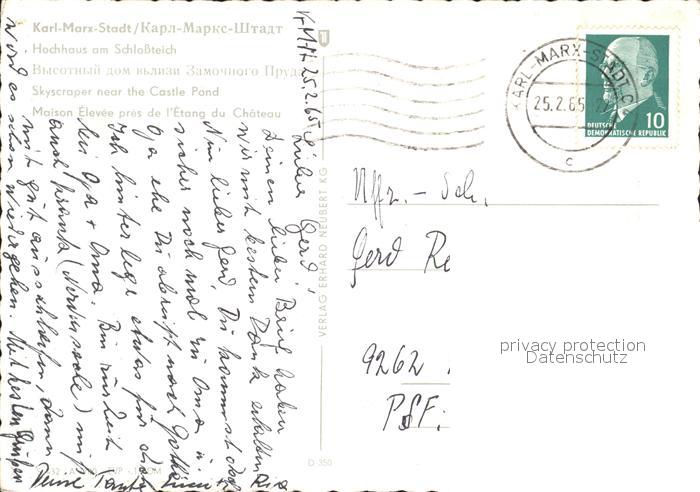 Karl-Marx-Stadt/Карл-Маркс-Штадт
Hochhaus am Schloßteich
Высотный дом вблизи Замочного Пруда
Skyscraper near the Castle Pond
Maison Élevée près de l'Étang du Château
K-M-St. 25.2.65
Lieber Gerd,
Deinen lieben Brief haben
wir mit bestem Dank erhalten.
Nun lieber Gerd, Du kommst doch
sicher noch mal zu Oma u.
Opa ehe Du abreist nach
Ich hinterlege etwas für dich
bei Opa + Oma. Bin zur Zeit
auch krank
mit gut ausschlafen, dann
wird es schon wieder gehen. Mit besten Grüßen
Deine Tante
VERLAG ERHARD NEUBERT KG
D 350
KARL-MARX-STADT C
25.2.65
c
DEUTSCHE
DEMOKRATISCHE REPUBLIK
10
Uffz. - Sch.
Gerd Re
9262
PSF:
privacy protection
Datenschutz